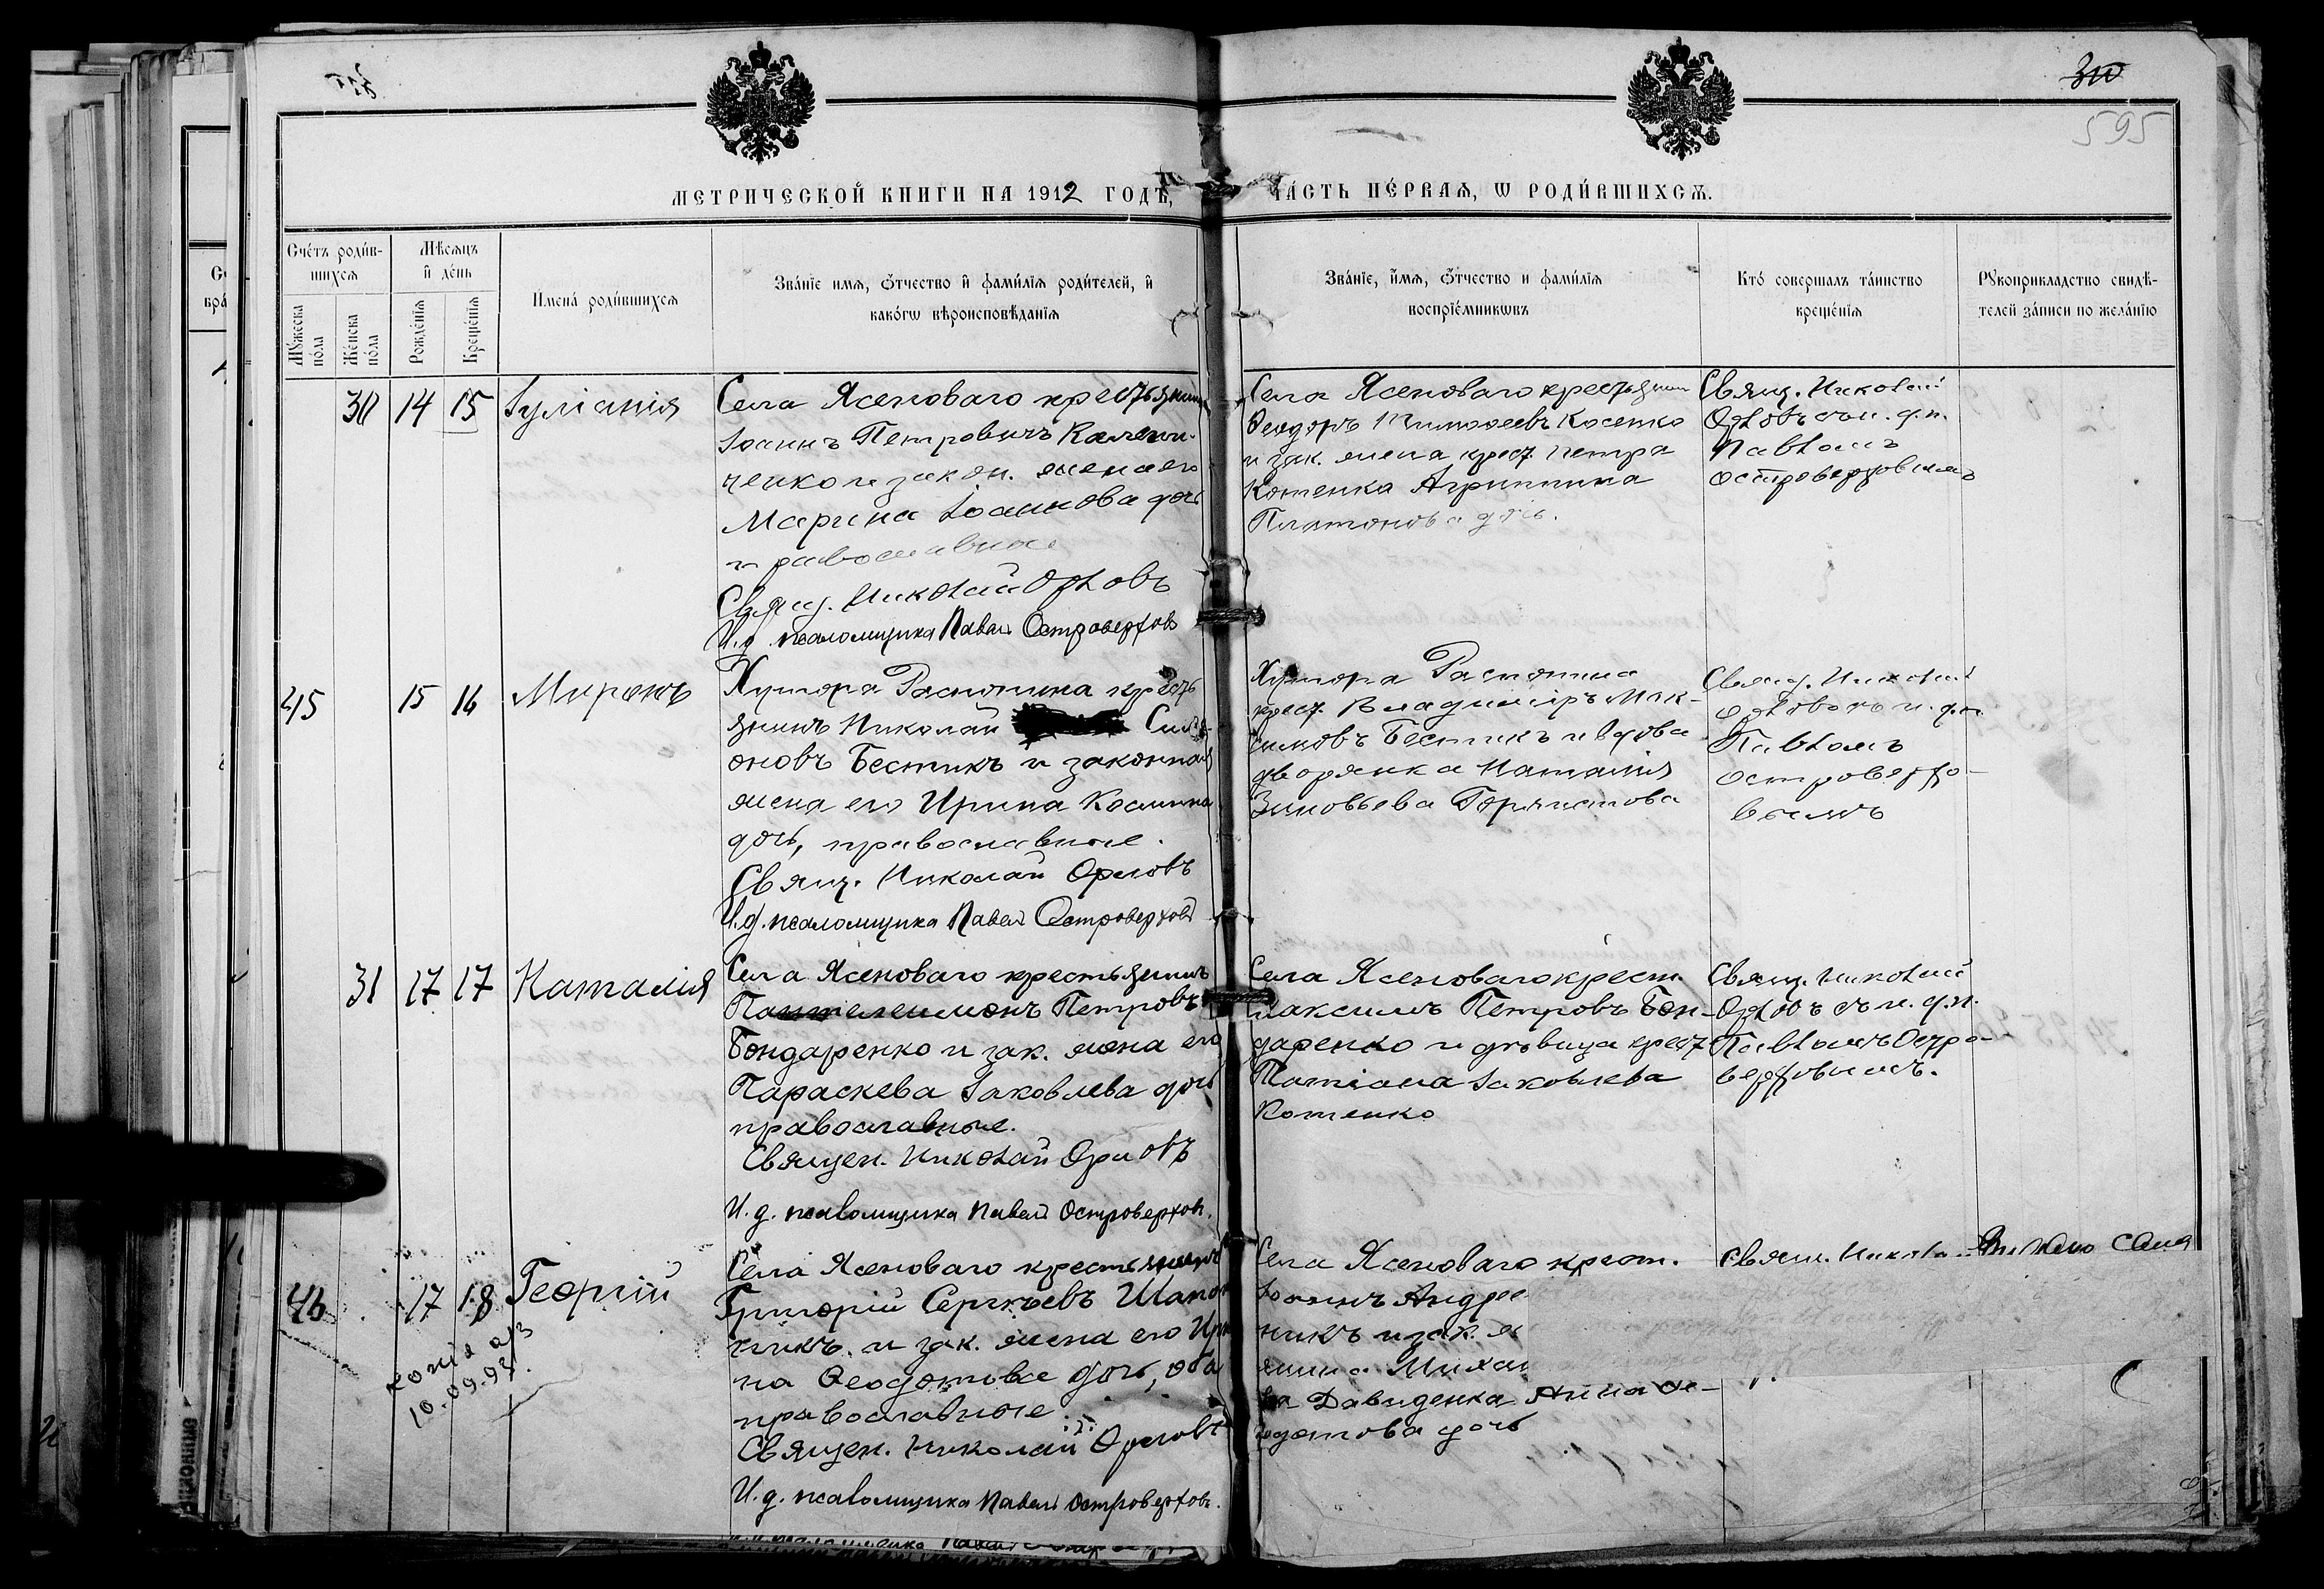 595
МЕТРИЧЕСКОЙ КНИГИ НА 1912 ГОДЪ,
ЧАСТЬ ПЕРВАЯ, Ѡ РОДИВШИХСЯ.
Счетъ родив-
шихся
Мужеска пола
Женска пола
Мѣсяцъ
и день
Рожденія
Крещенія
Имена родившихся
Званіе имя, ѿтчество и фамилія родителей, и
какогѡ вѣроисповѣданія
Званіе, имя, ѿтчество и фамилія
воспріемникѡвъ
Кто совершалъ таинство
крещенія
Рукоприкладство свидѣ-
телей записи по желанію
30 14 15 Іуліанія
Села Ясеноваго крестьянинъ
Іоаннъ Петровичъ
и закон. жена его
Марина Іоаннова дочь
православные
Свящ. Николай Орловъ
И.д. псаломщика Павелъ Островерховъ
Села Ясеноваго крестьянин
Феодоръ Тимофеевъ Косенко
и зак. жена крест. Петра
Котенка Агриппина
Платонова дочь.
Свящ. Николай
Орловъ съ и. д. п.
Павломъ
Островерховымъ
45 15 16 Миронъ
Хутора Распопина кресть
янинъ Николай Сим-
оновъ Бестикъ и законная
жена его Ирина Косьмина
дочь, православные.
Свящ. Николай Орловъ
И.д. псаломщика Павелъ Островерховъ
Хутора
крест. Владиміръ Мак-
симовъ Бестикъ и вдова
дворянка Наталія
Зиновьева
Свящ. Николай
Орловъ съ и. д. п.
Павломъ
Островерхо-
вымъ
31 17 17 Наталія
Села Ясеноваго крестьянинъ
Пантелеимонъ Петровъ
Бондаренко и зак. жена его
Параскева Іаковлева дочь
православные.
Священ. Николай Орловъ
И. д. псаломщика Павелъ Островерховъ.
Села Ясеноваго крест.
Максимъ Петровъ Бон-
даренко и дѣвица крест.
Татіана Іаковлева
Котенко
Свящ. Николай
Орловъ съ и. д. п.
Павломъ Остро-
верховымъ.
46 17 18 Георгій
копія а/з
10.09.93.
Села Ясеноваго крестьянинъ
Григорій Сергѣевъ
и зак. жена его Ири
на Феодотова дочь, оба
православные
Священ. Николай Орловъ
И. д. псаломщика Павелъ Островерховъ.
Села Ясеноваго крест.
Іоаннъ Андрее
никъ и зак. ж
Миха
Давиденка Анна Фе-
одотова дочь
Свящ. Никола